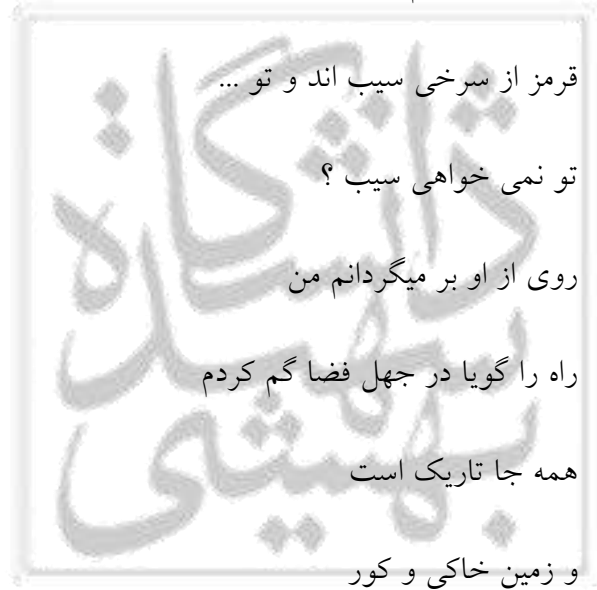 قرمز از سرخی سیب اند و تو ...
تو نمی خواهی سیب ؟
روی از او بر میگردانم من
راه را گویا در جهل فضا گم کردم
همه جا تاریک است
و زمین خاکی و کور
دانشگاه
شهید
بهشتی